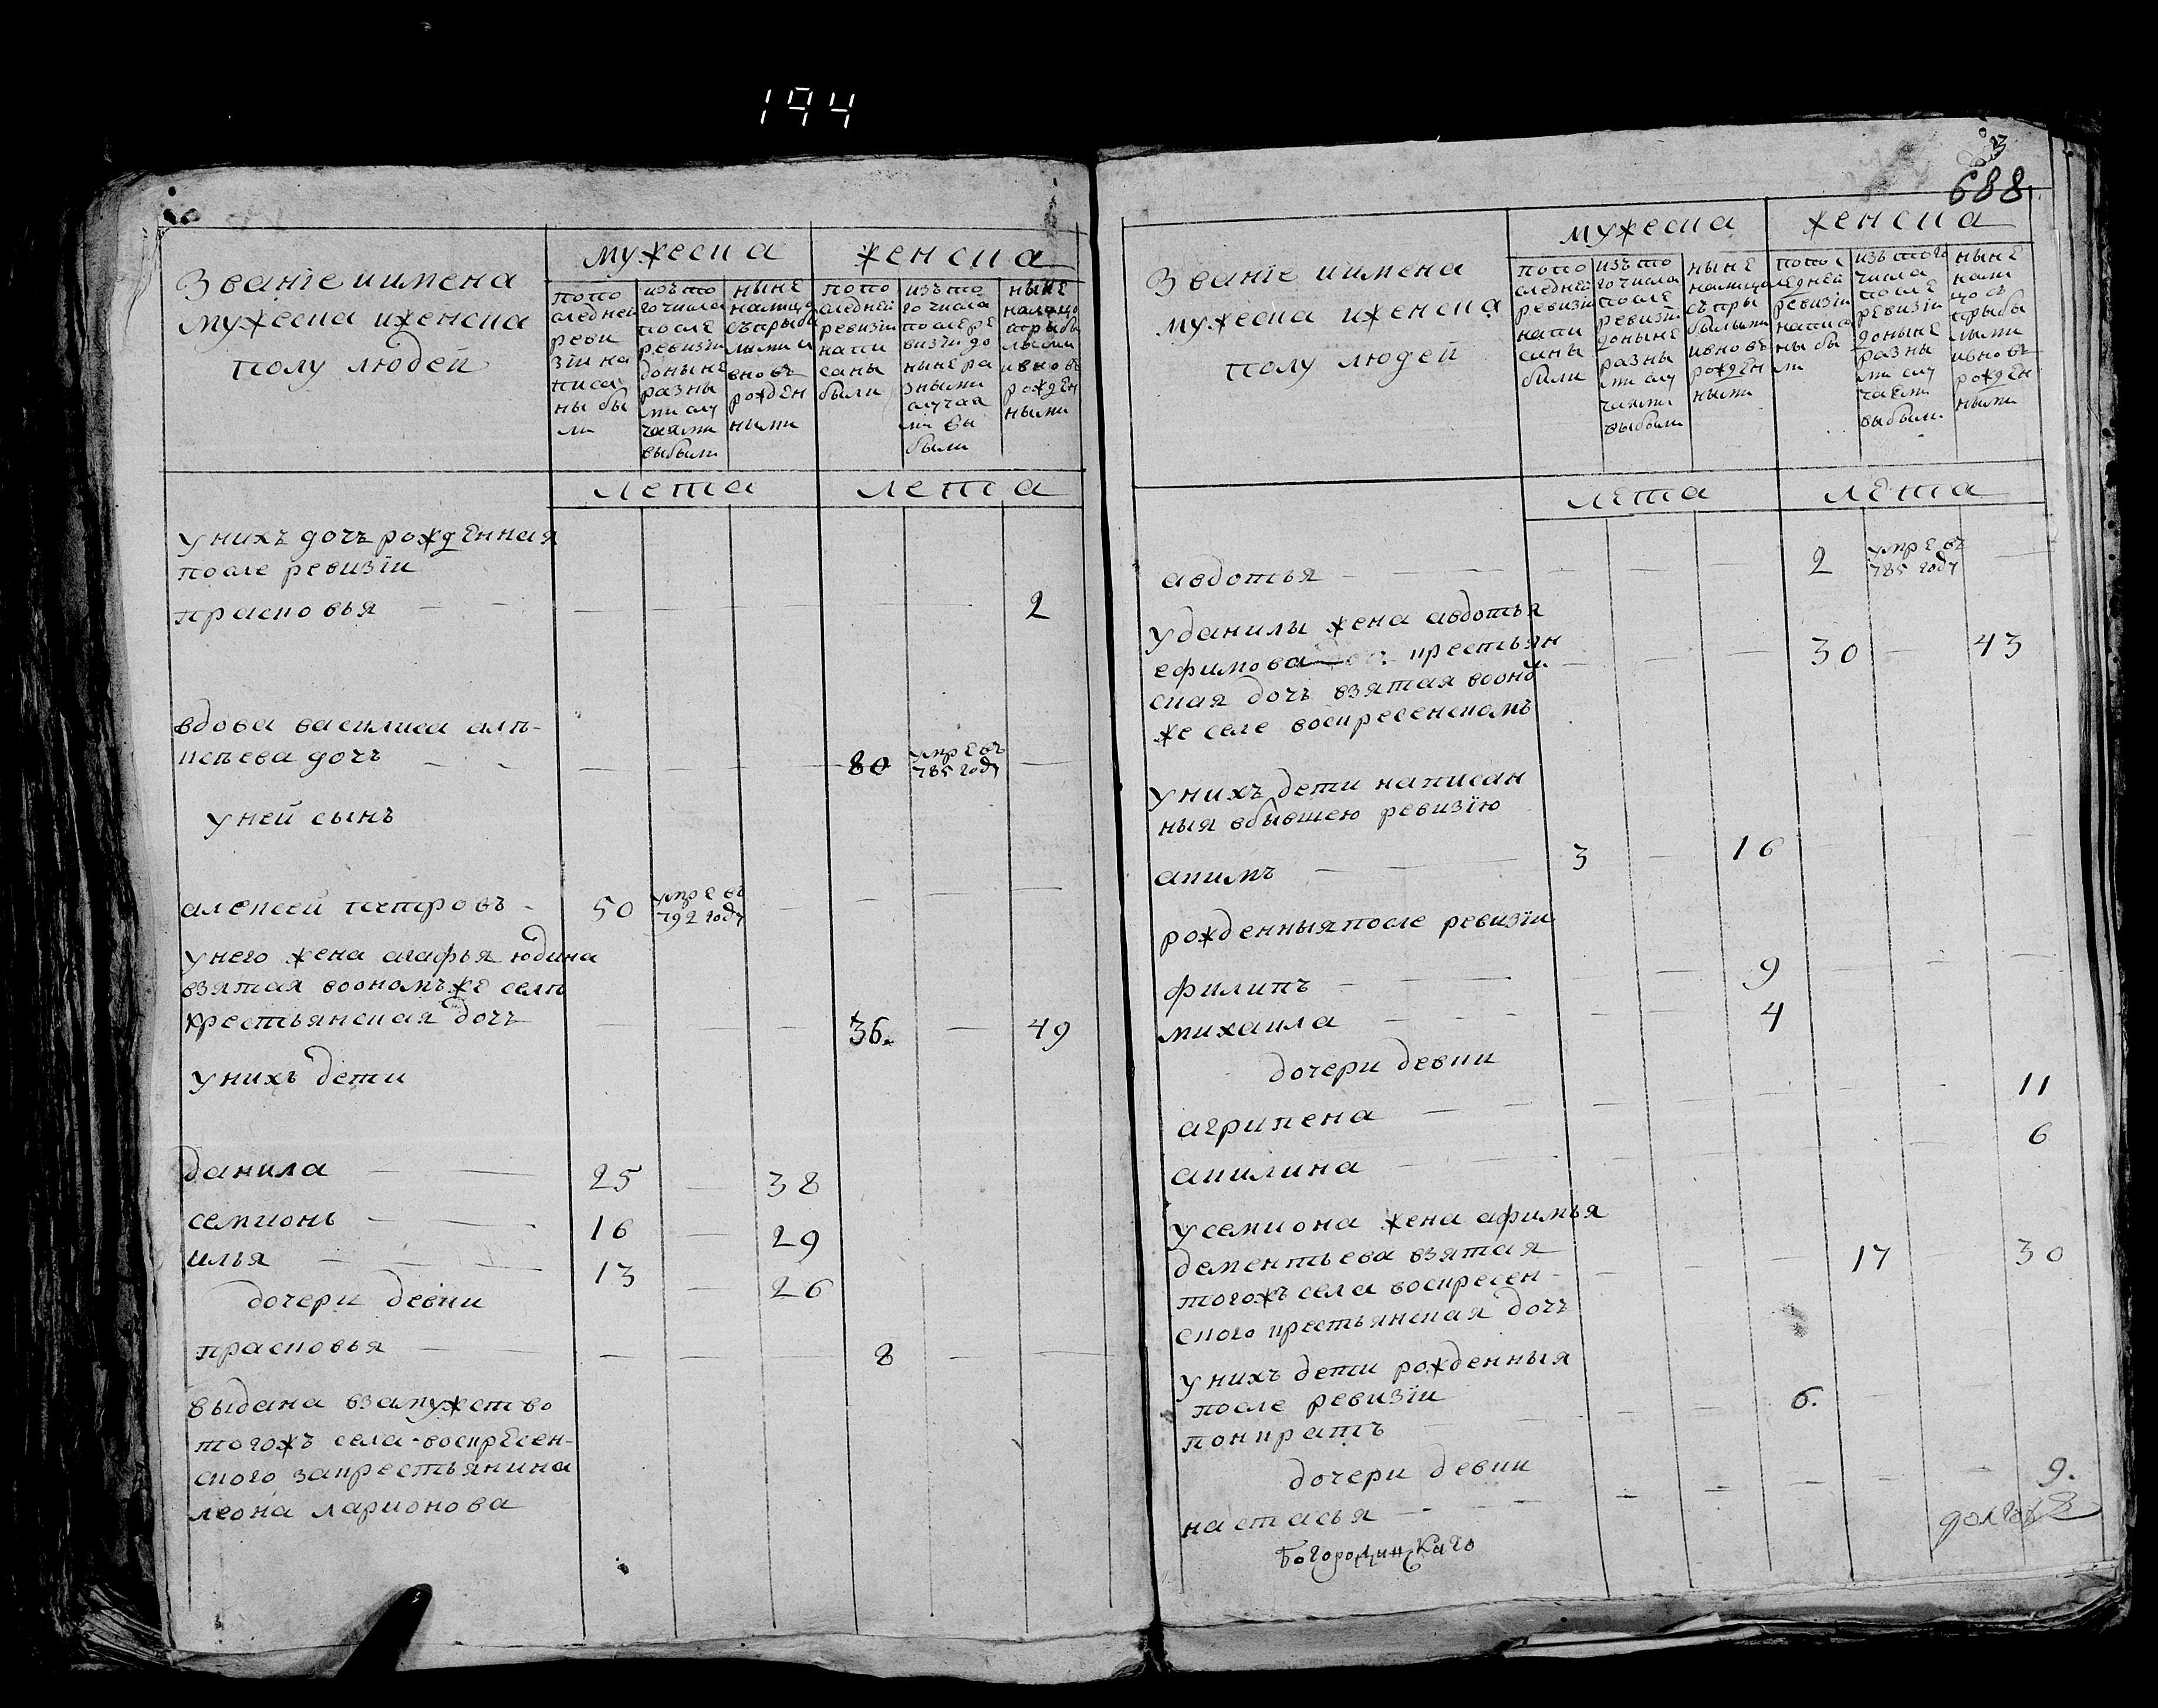 194
Званїе иимена
мужеска иженска
полу людей
мужеска
женска
попо
следней
реви
зїи на
писа
ны бы
ли
изъ то
го числа
после
ревизїи
доныне
разны
ми слу
чаями
выбыли
ныне
налицо
съприбы
лыми и
вновь
рожден
ными
попо
следней
ревизїи
напи
саны
были
изъ то
го числа
послере
визїи до
ныне ра
зными
случая
ми вы
были
ныне
налицо
прибы
лыми
ивновь
рожден
ными
лета
лета
унихъ дочь рожденная
после ревизїи
прасковья 2
вдова василиса алѣ-
ксѣева дочь 80 умре въ
785 году
уней сынъ
алексей петровъ 50 умре въ
792 году
унего жена агафья юдина
взятая воономъже селѣ
крестьянская дочь 36. 49
унихъ дети
данила 25 38
семионъ 16 29
илья 13 26
дочери девки
прасковья 8
выдана взамужство
тогожъ села воскресен-
ского закрестьянина
леона ларионова
3
688
Званїе иимена
мужеска иженска
полу людей
мужеска
женска
попо
следней
ревизїи
напи
саны
были
изъ то
го числа
после
ревизїи
доныне
разны
ми слу
чаями
выбыли
ныне
налицо
съпри
былыми
ивновь
рожден
ными
попос
ледней
ревизїи
написа
ны бы
ли
изъ того
числа
после
ревизїи
доныне
разны
ми слу
чаями
выбыли
ныне
нали
цо съ
прибы
лыми
ивновь
рожден
ными
лета
лета
авдотья 2 умре въ
785 году
уданилы жена авдотья
ефимова крестьян 30 43
ская дочь взятая вооно
же селе воскресенскомъ
унихъ дети написан
ныя вбывшею ревизїю
акимъ 3 16
рожденныяпосле ревизїи
филипъ 9
михаила 4
дочери девки
агрипена 11
акилина 6
усемиона жена афимья
дементьева взятая 17 30
тогожъ села воскресен-
ского крестьянская дочь
унихъ дети рожденныя
после ревизїи
понкратъ 6.
дочери девки
настасья 9.
Богородицкаго